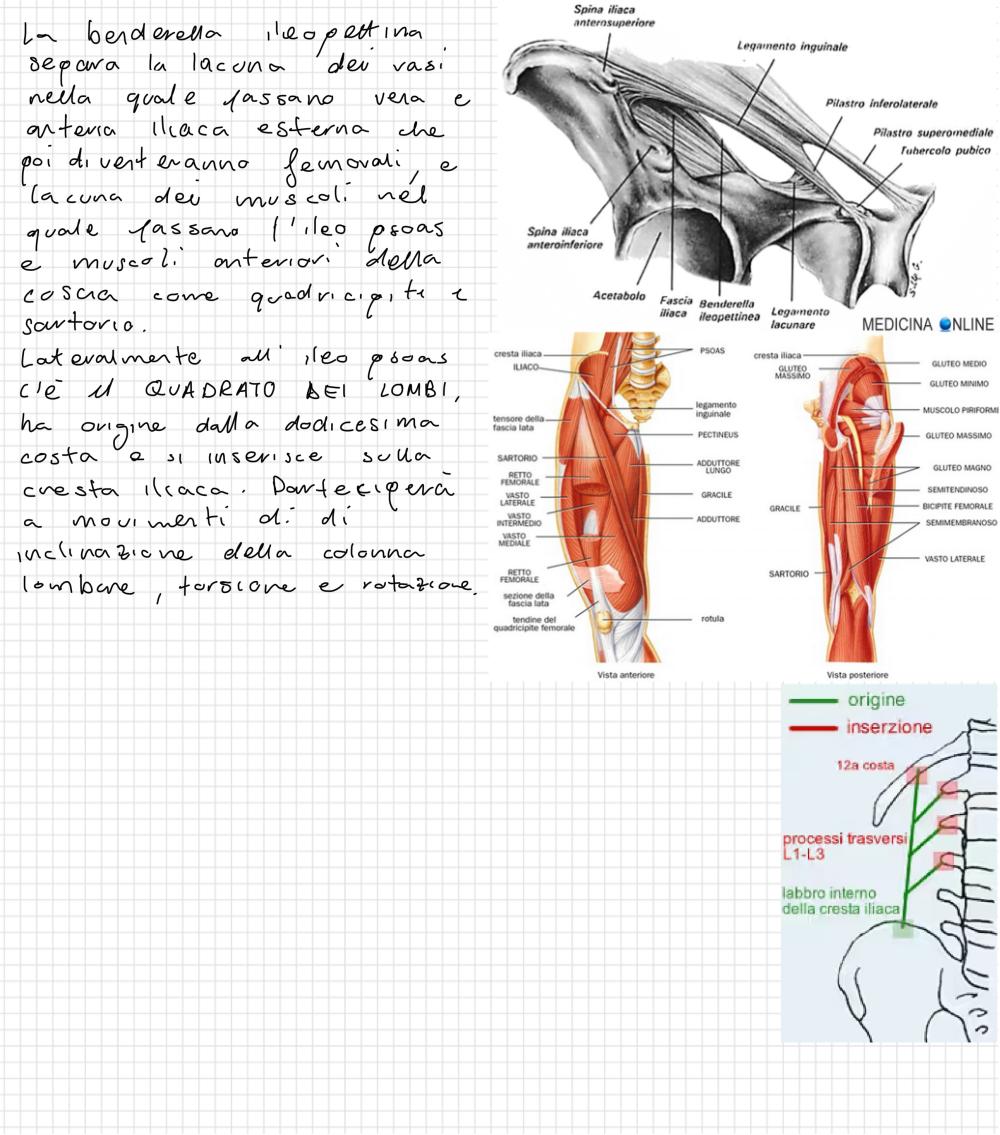 La benderella ileopettina
separa la lacuna dei vasi
nella quale passano vena e
arteria iliaca esterna che
poi diventeranno femorali, e
lacuna dei muscoli nel
quale passano l'ileo psoas
e muscoli anteriori della
coscia come quadricipite e
sartorio.
Lateralmente all' ileo psoas
c'è il QUADRATO DEI LOMBI,
ha origine dalla dodicesima
costa e si inserisce sulla
cresta iliaca. Parteciperà
a movimenti di di
inclinazione della colonna
lombare, torsione e rotazione.
Spina iliaca
anterosuperiore
Legamento inguinale
Pilastro inferolaterale
Pilastro superomediale
Tubercolo pubico
Spina iliaca
anteroinferiore
Acetabolo
Fascia
iliaca
Benderella
ileopettinea
Legamento
lacunare
MEDICINA ONLINE
cresta iliaca
ILIACO
PSOAS
tensore della
fascia lata
legamento
inguinale
PECTINEUS
SARTORIO
RETTO
FEMORALE
ADDUTTORE
LUNGO
VASTO
LATERALE
GRACILE
VASTO
INTERMEDIO
ADDUTTORE
VASTO
MEDIALE
RETTO
FEMORALE
sezione della
fascia lata
tendine del
quadricipite femorale
rotula
Vista anteriore
cresta iliaca
GLUTEO
MASSIMO
GLUTEO MEDIO
GLUTEO MINIMO
MUSCOLO PIRIFORM
GLUTEO MASSIMO
GLUTEO MAGNO
SEMITENDINOSO
GRACILE
BICIPITE FEMORALE
SEMIMEMBRANOSO
VASTO LATERALE
SARTORIO
Vista posteriore
origine
inserzione
12a costa
processi trasversi
L1-L3
labbro interno
della cresta iliaca